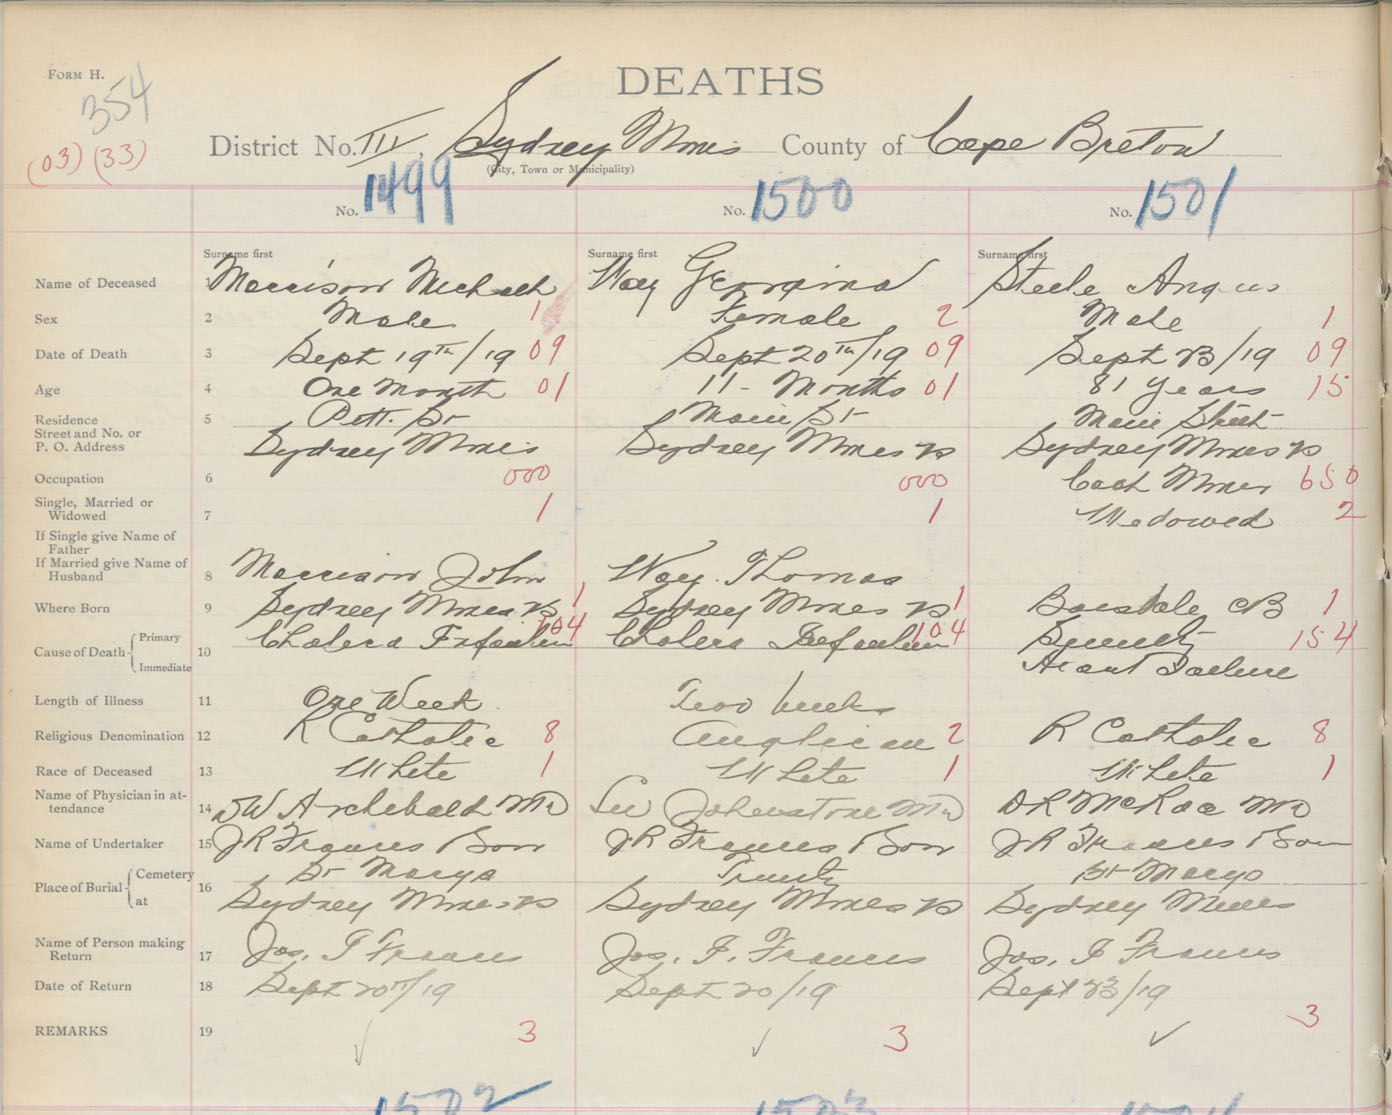 FORM H.
354
DEATHS
(03) (33)
District No. III, Sydney Mines County of Cape Breton
(City, Town or Municipality)
No. 1499 No. 1500 No. 1501
Surname first Surname first Surname first
Name of Deceased 1 Morrison Michael Way Georgina Steele Angus
Sex 2 Male 1 Female 2 Male 1
Date of Death 3 Sept 19th/19 09 Sept 20th/19 09 Sept 23/19 09
Age 4 One Month 01 11 - Months 01 81 Years 15
Residence 5 Pitt. St Main St Main Street
Street and No. or
P. O. Address Sydney Mines Sydney Mines NS Sydney Mines NS
Occupation 6 000 000 Coal Miner 650
Single, Married or
Widowed 7 1 1 Widowed 2
If Single give Name of
Father
If Married give Name of
Husband 8 Morrison John Way. Thomas
Where Born 9 Sydney Mines NS 1 Sydney Mines NS 1 Boisdale CB 1
Cause of Death Primary 10 Cholera Infantum 104 Cholera Infantum 104 Senility 154
Immediate Heart Failure
Length of Illness 11 One Week Two weeks
Religious Denomination 12 R Catholic 8 Anglican 2 R Catholic 8
Race of Deceased 13 White 1 White 1 White 1
Name of Physician in at-
tendance 14 DW Archibald MD Johnstone MD DR McRae MD
Name of Undertaker 15 JR Francis Son JR Francis Son JR Francis Son
Place of Burial Cemetery 16 St Marys Trinity St Marys
at Sydney Mines NS Sydney Mines NS Sydney Mines
Name of Person making
Return 17 Jos. I Francis Jos. I. Francis Jos. I Francis
Date of Return 18 Sept 20th/19 Sept 20/19 Sept 23/19
REMARKS 19 3 3 3
1502 1503